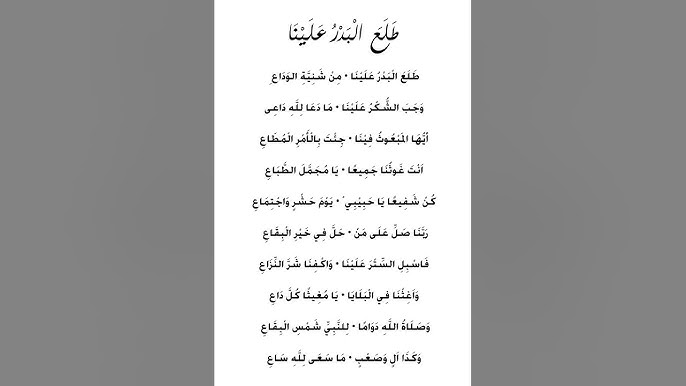 طَلَعَ الْبَدْرُ عَلَيْنَا
طَلَعَ الْبَدْرُ عَلَيْنَا • مِنْ شَنِيَّةِ الوَدَاعِ
وَجَبَ الشُّكْرُ عَلَيْنَا • مَا دَعَا لِلَّهِ دَاعِى
أَيُّهَا الْمَبْعُوثُ فِيْنَا • جِئْتَ بِالْأَمْرِ الْمُطَاعِ
اَنْتَ غَوْثُنَا جَمِيعًا • يَا مُجَمَّلَ الطَّبَاعِ
كُنْ شَفِيعًا يَا حَبِيْبِي • يَوْمَ حَشْرٍ وَاجْتِمَاعِ
رَبَّنَا صَلِّ عَلَى مَنْ • حَلَّ فِي خَيْرِ الْبِقَاعِ
فَاسْبِلِ السِّتْرَ عَلَيْنَا • وَاكْفِنَا شَرَّ النِّزَاعِ
وَاَغِثْنَا فِي الْبَلَايَا • يَا مُغِيثًا كُلَّ دَاعِ
وَصَلَاةُ اللَّهِ دَوَامًا • لِلنَّبِيِّ شَمْسِ الْبِقَاعِ
وَكَذَا آلٍ وَصَعْبٍ • مَا سَعَى لِلَّهِ سَاعِ